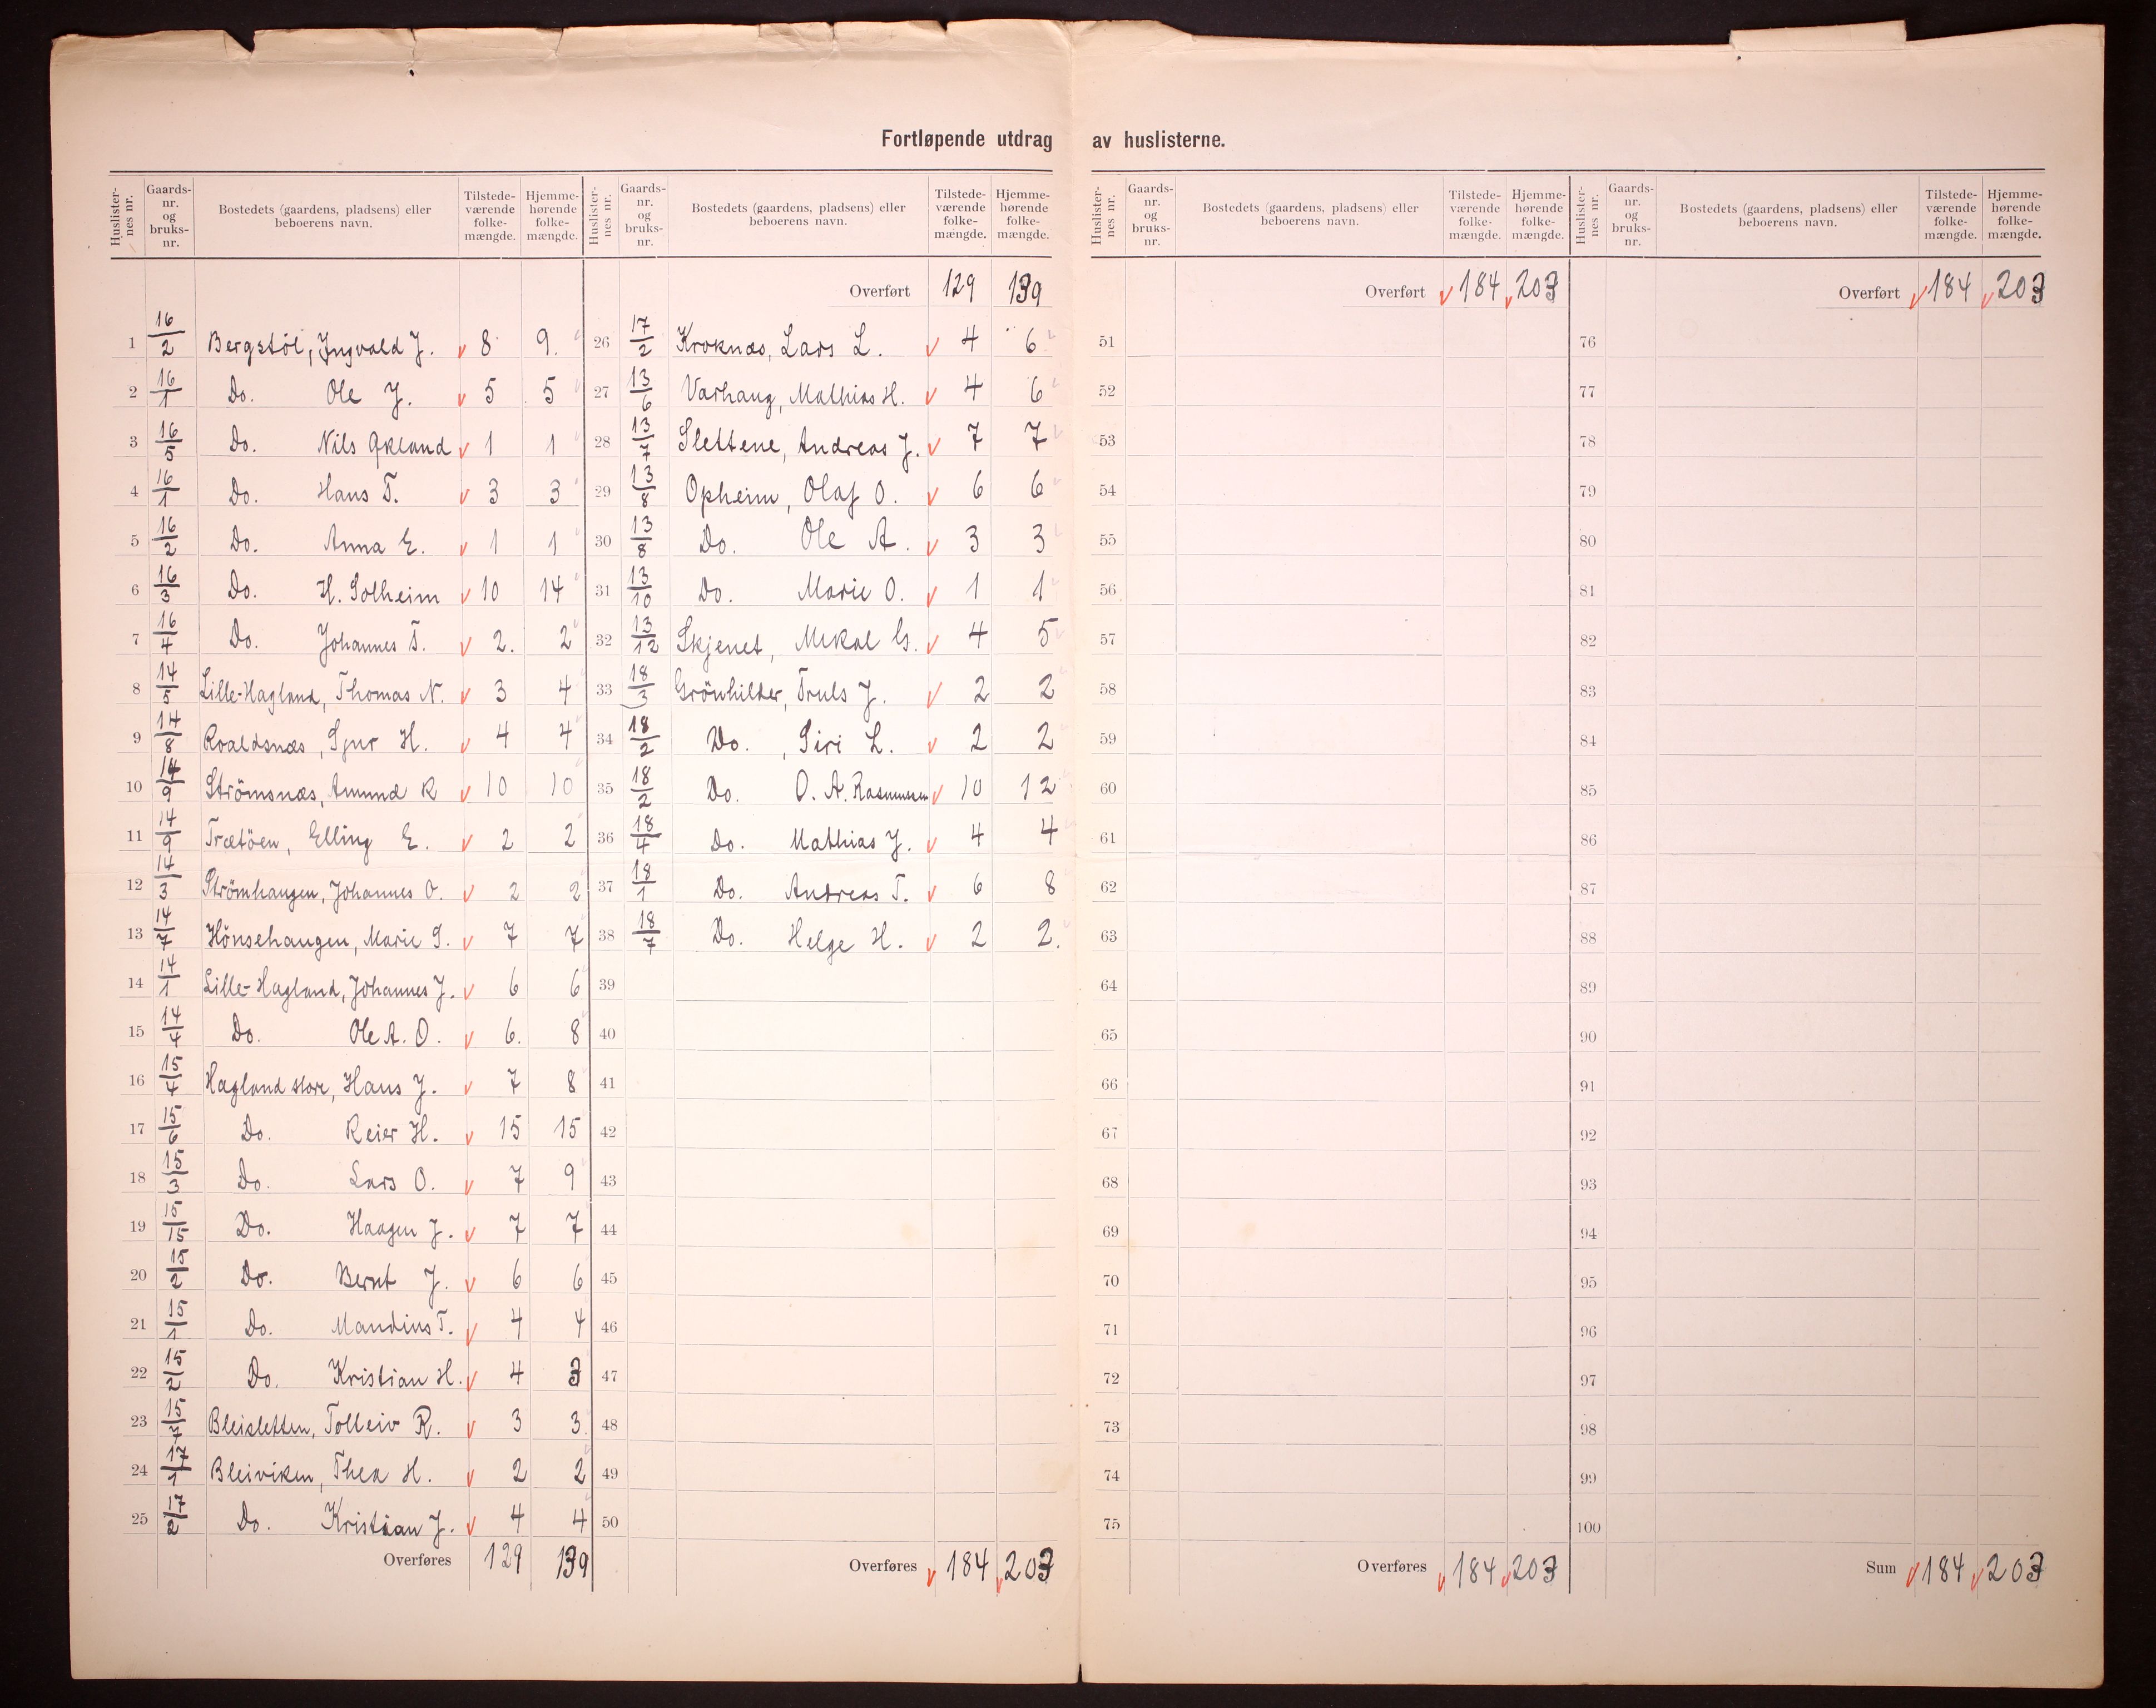 Fortløpende utdrag av huslisterne.
Huslisternes nr. Gaards-nr. og bruks-nr. Bostedets (gaardens, pladsens) eller beboerens navn. Tilstede-værende folke-mængde. Hjemme-hørende folke-mængde.
1 16/2 Bergstöl, Ingvald J. v 8 9.
2 16/1 Do. Ole J. v 5 5
3 16/5 Do. Nils Økland v 1 1
4 16/1 Do. Hans T. v 3 3
5 16/2 Do. Anna E. v 1 1
6 16/3 Do. H. Solheim v 10 14
7 16/4 Do. Johannes T. v 2. 2
8 14/5 Lille-Hagland, Thomas N. v 3 4
9 14/8 Roaldsnæs, Sjur H. v 4 4
10 14/9 Strömsnæs, Amund R v 10 10
11 14/9 Trætöen, Elling E. v 2 2
12 14/3 Strömhaugen, Johannes O. v 2 2
13 14/7 Hönsehaugen, Marie S. v 7 7
14 14/1 Lille-Hagland, Johannes J. v 6 6
15 14/4 Do. Ole A. O. v 6. 8
16 15/4 Hagland store, Hans J. v 7 8
17 15/6 Do. Reier H. v 15 15
18 15/3 Do. Lars O. v 7 9
19 15/15 Do. Haagen J. v 7 7
20 15/2 Do. Bernt J. v 6 6
21 15/1 Do. Mandius T. v 4 4
22 15/2 Do. Kristian H. v 4 3
23 15/7 Bleisletten, Tolleiv R. v 3 3.
24 17/1 Bleiviken, Thea H. v 2 2
25 17/2 Do. Kristian J. v 4 4
Overføres 129 139
Huslisternes nr. Gaards-nr. og bruks-nr. Bostedets (gaardens, pladsens) eller beboerens navn. Tilstede-værende folke-mængde. Hjemme-hørende folke-mængde.
Overført 129 139
26 17/2 Kroknæs, Lars L. v 4 6
27 13/6 Varhaug, Mathias H. v 4 6
28 13/7 Slettene, Andreas J. v 7 7
29 13/8 Opheim, Olaf O. v 6 6
30 13/8 Do. Ole A. v 3 3
31 13/10 Do. Marie O. v 1 1
32 13/12 Skjenet, Mikal G. v 4 5
33 18/3 Grönhilder, Truls J. v 2 2
34 18/2 Do. , Siri L. v 2 2
35 18/2 Do. O. A. Rasmussen v 10 12
36 18/4 Do. Mathias J. v 4 4
37 18/1 Do. Andreas T. v 6 8
38 18/7 Do. Helge H. v 2 2.
39
40
41
42
43
44
45
46
47
48
49
50
Overføres v 184 v 203
Huslisternes nr. Gaards-nr. og bruks-nr. Bostedets (gaardens, pladsens) eller beboerens navn. Tilstede-værende folke-mængde. Hjemme-hørende folke-mængde.
Overført v 184 v 203
51
52
53
54
55
56
57
58
59
60
61
62
63
64
65
66
67
68
69
70
71
72
73
74
75
Overføres v 184 v 203
Huslisternes nr. Gaards-nr. og bruks-nr. Bostedets (gaardens, pladsens) eller beboerens navn. Tilstede-værende folke-mængde. Hjemme-hørende folke-mængde.
Overført v 184 v 203
76
77
78
79
80
81
82
83
84
85
86
87
88
89
90
91
92
93
94
95
96
97
98
99
100
Sum v 184 v 203